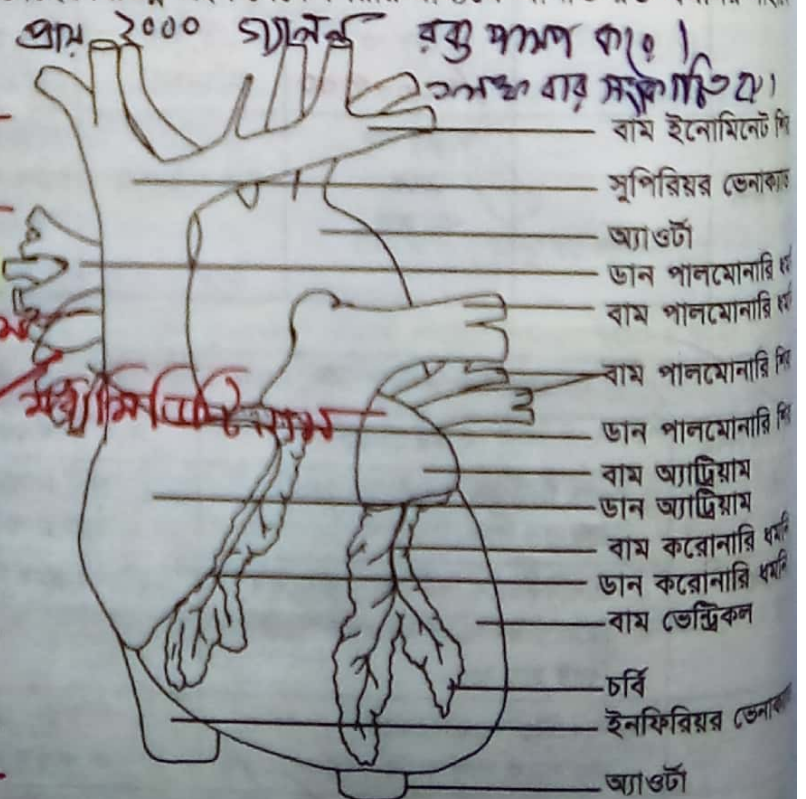 প্রায় ২০০০ গ্যালন রক্ত পাম্প করে।
বার
বাম ইনোমিনেট
সুপিরিয়র ভেনাকাভ
অ্যাওর্টা
ডান পালমোনারি
বাম পালমোনারি
বাম পালমোনারি
ডান পালমোনারি
বাম অ্যাট্রিয়াম
ডান অ্যাট্রিয়াম
বাম করোনারি ধমনি
ডান করোনারি ধমনি
বাম ভেন্ট্রিকল
চর্বি
ইনফিরিয়র ভেনাকাভ
অ্যাওর্টা